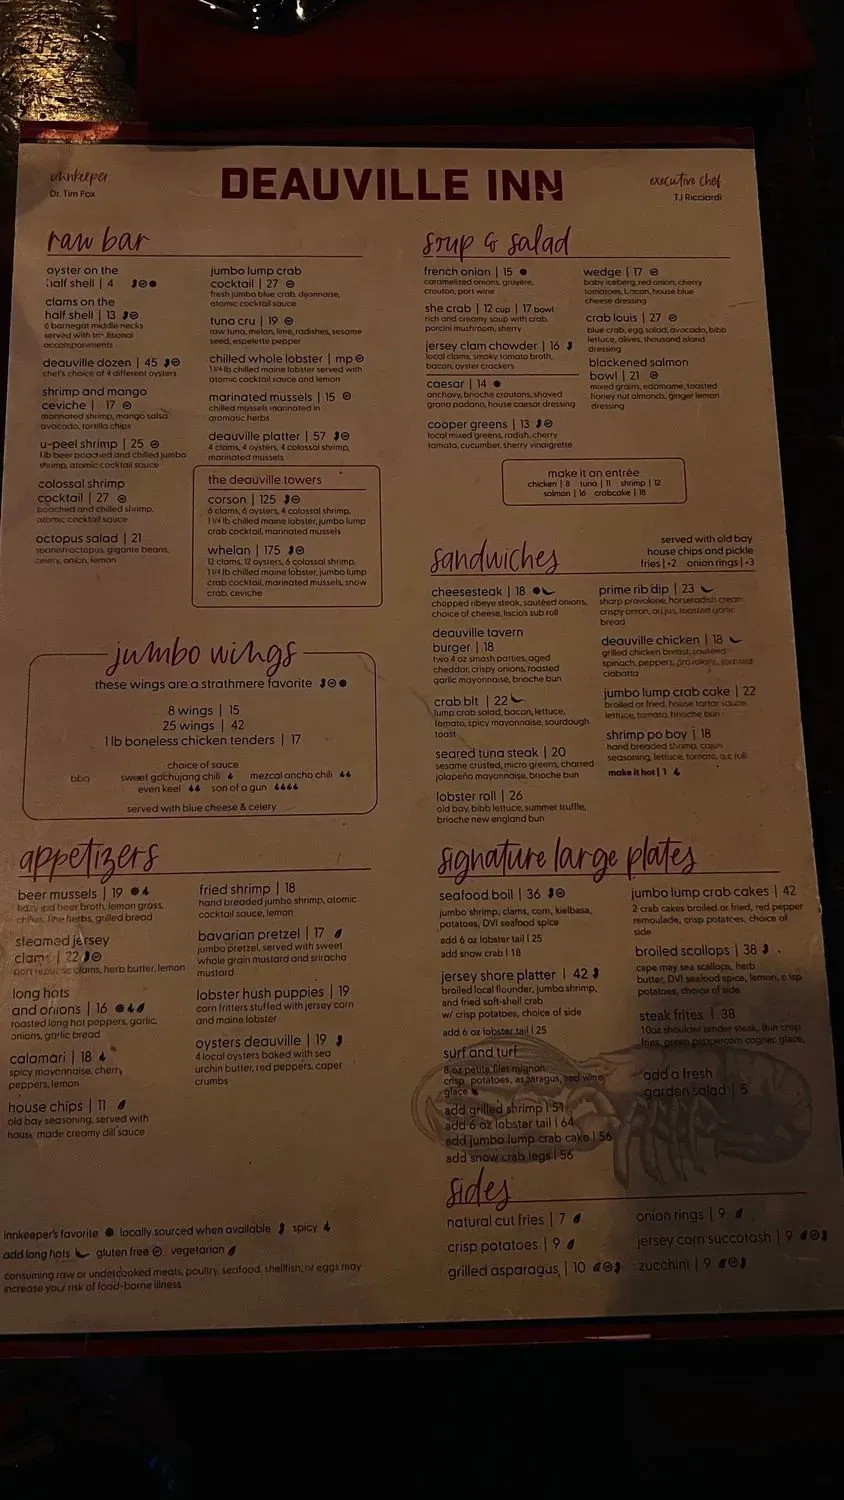 innkeeper
Dr. Tim Fox
DEAUVILLE INN
executive chef
TJ Ricciardi
raw bar
oyster on the
half shell | 4
clams on the
half shell | 13
6 barnegat middle necks
served with traditional
accompaniments
deauville dozen | 45
chef's choice of 4 different oysters
shrimp and mango
ceviche | 17
marinated shrimp, mango salsa
avocado, tortilla chips
u-peel shrimp | 25
1 lb beer poached and chilled jumbo
shrimp, atomic cocktail sauce
colossal shrimp
cocktail | 27
poached and chilled shrimp,
atomic cocktail sauce
octopus salad | 21
spanish octopus, gigante beans,
celery, onion, lemon
jumbo lump crab
cocktail | 27
fresh jumbo blue crab, dijonnaise,
atomic cocktail sauce
tuna cru | 19
raw tuna, melon, lime, radishes, sesame
seed, espelette pepper
chilled whole lobster | mp
1 1/4 lb chilled maine lobster served with
atomic cocktail sauce and lemon
marinated mussels | 15
chilled mussels marinated in
aromatic herbs
deauville platter | 57
4 clams, 4 oysters, 4 colossal shrimp,
marinated mussels
the deauville towers
corson | 125
6 clams, 6 oysters, 4 colossal shrimp,
1 1/4 lb chilled maine lobster, jumbo lump
crab cocktail, marinated mussels
whelan | 175
12 clams, 12 oysters, 6 colossal shrimp,
1 1/4 lb chilled maine lobster, jumbo lump
crab cocktail, marinated mussels, snow
crab, ceviche
soup & salad
french onion | 15
caramelized onions, gruyère,
crouton, port wine
she crab | 12 cup | 17 bowl
rich and creamy soup with crab,
porcini mushroom, sherry
jersey clam chowder | 16
local clams, smoky tomato broth,
bacon, oyster crackers
caesar | 14
anchovy, brioche croutons, shaved
grana padano, house caesar dressing
cooper greens | 13
local mixed greens, radish, cherry
tomato, cucumber, sherry vinaigrette
wedge | 17
baby iceberg, red onion, cherry
tomatoes, bacon, house blue
cheese dressing
crab louis | 27
blue crab, egg salad, avocado, bibb
lettuce, olives, thousand island
dressing
blackened salmon
bowl | 21
mixed grains, edamame, toasted
honey nut almonds, ginger lemon
dressing
make it an entrée
chicken | 8 tuna | 11 shrimp | 12
salmon | 16 crabcake | 18
sandwiches
served with old bay
house chips and pickle
fries | +2 onion rings | +3
cheesesteak | 18
chopped ribeye steak, sautéed onions,
choice of cheese, liscio's sub roll
deauville tavern
burger | 18
two 4 oz smash patties, aged
cheddar, crispy onions, roasted
garlic mayonnaise, brioche bun
crab blt | 22
lump crab salad, bacon, lettuce,
tomato, spicy mayonnaise, sourdough
toast
seared tuna steak | 20
sesame crusted, micro greens, charred
jalapeño mayonnaise, brioche bun
lobster roll | 26
old bay, bibb lettuce, summer truffle,
brioche new england bun
prime rib dip | 23
sharp provolone, horseradish cream
crispy onion, au jus, toasted garlic
bread
deauville chicken | 18
grilled chicken breast, sauteed
spinach, peppers, provolone, toasted
ciabatta
jumbo lump crab cake | 22
broiled or fried, house tartar sauce,
lettuce, tomato, brioche bun
shrimp po boy | 18
hand breaded shrimp, cajun
seasoning, lettuce, tomato, a.c roll
make it hot | 1
jumbo wings
these wings are a strathmere favorite
8 wings | 15
25 wings | 42
1 lb boneless chicken tenders | 17
choice of sauce
bbq sweet gochujang chili mezcal ancho chili
even keel son of a gun
served with blue cheese & celery
appetizers
beer mussels | 19
hazy ipa beer broth, lemon grass,
chilies, fine herbs, grilled bread
steamed jersey
clams | 22
port republic clams, herb butter, lemon
long hots
and onions | 16
roasted long hot peppers, garlic,
onions, garlic bread
calamari | 18
spicy mayonnaise, cherry
peppers, lemon
house chips | 11
old bay seasoning, served with
house made creamy dill sauce
fried shrimp | 18
hand breaded jumbo shrimp, atomic
cocktail sauce, lemon
bavarian pretzel | 17
jumbo pretzel, served with sweet
whole grain mustard and sriracha
mustard
lobster hush puppies | 19
corn fritters stuffed with jersey corn
and maine lobster
oysters deauville | 19
4 local oysters baked with sea
urchin butter, red peppers, caper
crumbs
signature large plates
seafood boil | 36
jumbo shrimp, clams, corn, kielbasa,
potatoes, DVI seafood spice
add 6 oz lobster tail | 25
add snow crab | 18
jersey shore platter | 42
broiled local flounder, jumbo shrimp,
and fried soft-shell crab
w/ crisp potatoes, choice of side
add 6 oz lobster tail | 25
surf and turf
8 oz petite filet mignon
crisp potatoes, asparagus, red wine
glace
add grilled shrimp | 51
add 6 oz lobster tail | 64
add jumbo lump crab cake | 56
add snow crab legs | 56
jumbo lump crab cakes | 42
2 crab cakes broiled or fried, red pepper
remoulade, crisp potatoes, choice of
side
broiled scallops | 38
cape may sea scallops, herb
butter, DVI seafood spice, lemon, crisp
potatoes, choice of side
steak frites | 38
10oz shoulder tender steak, thin crisp
fries, green peppercorn cognac glace,
add a fresh
garden salad | 5
sides
natural cut fries | 7
crisp potatoes | 9
grilled asparagus | 10
onion rings | 9
jersey corn succotash | 9
zucchini | 9
innkeeper's favorite locally sourced when available spicy
add long hots gluten free vegetarian
consuming raw or undercooked meats, poultry, seafood, shellfish, or eggs may
increase your risk of food-borne illness